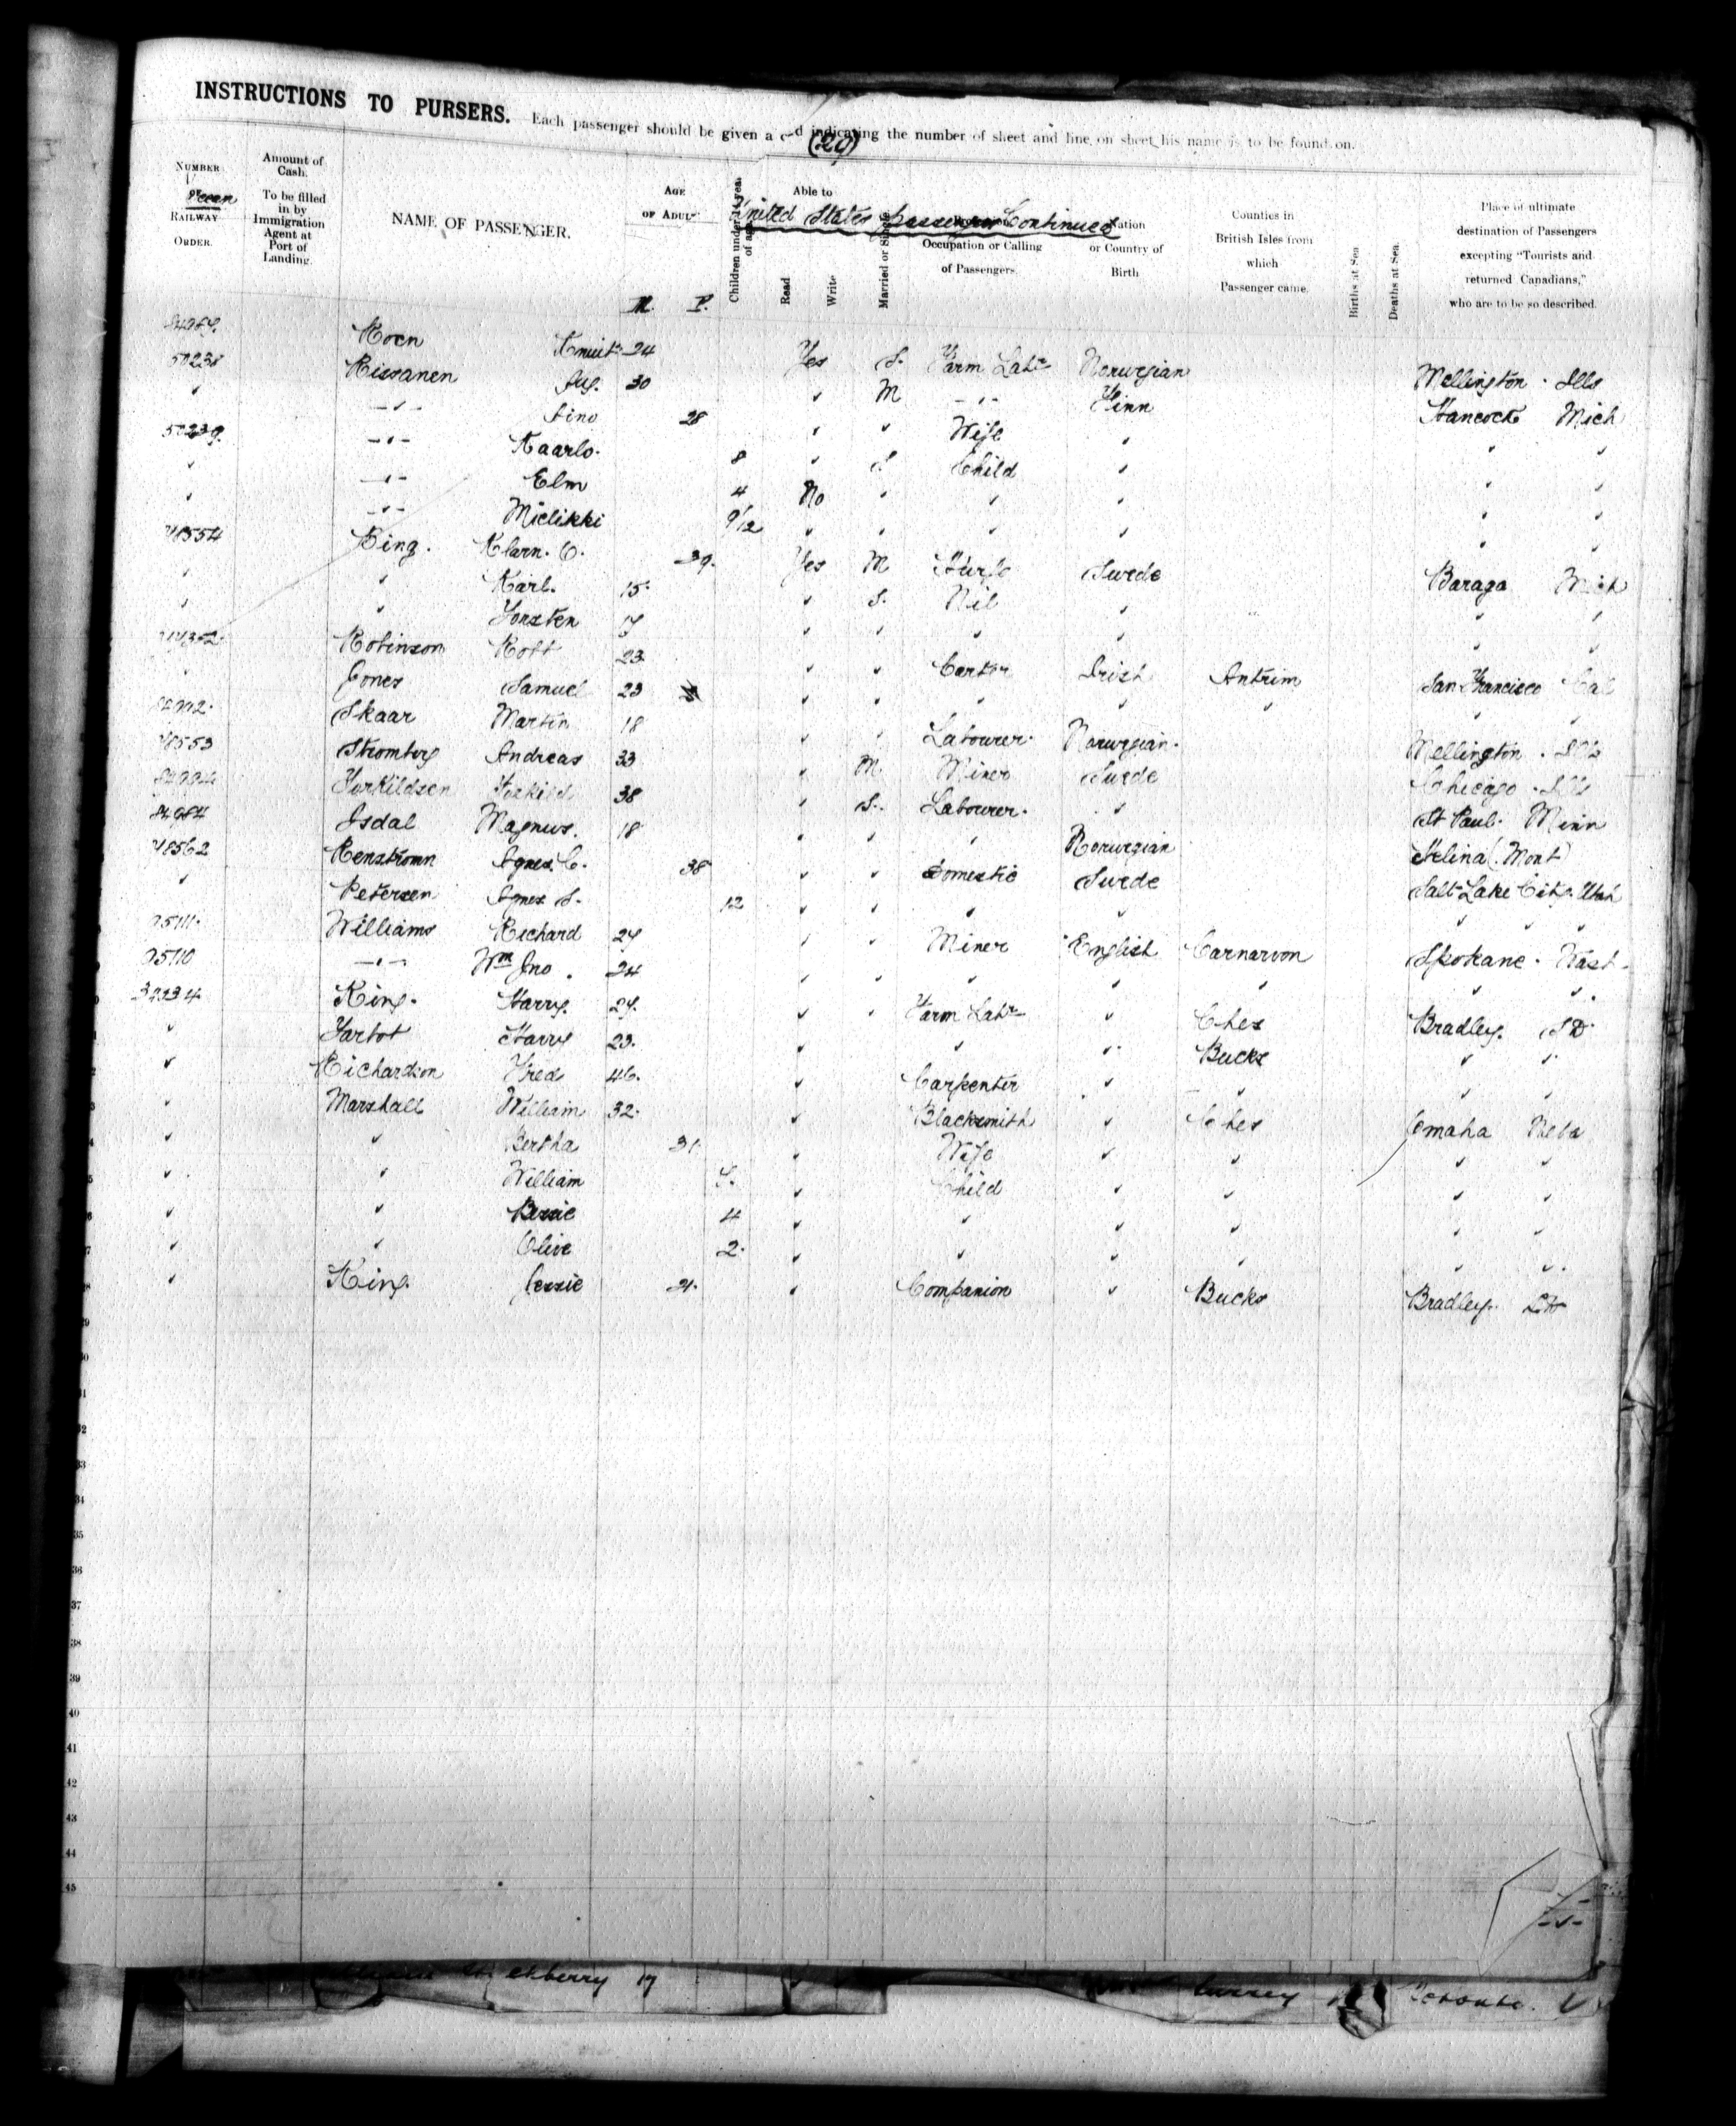 INSTRUCTIONS TO PURSERS. Each passenger should be given a card indicating the number of sheet and line, on sheet his name is to be found on.
(29)
United States Passengers Continued
NUMBER Ocean RAILWAY ORDER.
Amount of Cash. To be filled in by Immigration Agent at Port of Landing.
NAME OF PASSENGER.
AGE OF ADULT
M. F.
Children under 14 years of age
Able to Read Write
Married or Single
Occupation or Calling of Passengers.
Nation or Country of Birth
Counties in British Isles from which Passenger came.
Births at Sea
Deaths at Sea.
Place of ultimate destination of Passengers excepting "Tourists and returned Canadians," who are to be so described.
Knuit 24 Yes S. Farm Labr Norwegian Mellington. Ills
50238 Rissanen 30 " M -"- Finn Hancock Mich
" -"- Aino 28 " " Wife " " "
50239 -"- Kaarlo. 8 " S. Child " " "
" -"- Elm 4 No " " " " "
" -"- Mielikki 9/12 " " " " " "
48554 Ring. Klarn. C. 39. Yes M Swede Baraga Mich
" " Karl. 15. " S. Nil " " "
" " Torsten 17 " " " " " "
Robinson Robt 23 " " Carter Irish Antrim San Francisco Cal
" Jones Samuel 23 " " " " " "
Skaar Martin 18 " " Labourer. Norwegian. Mellington. Ills
48553 Stromberg Andreas 33 " M Miner Swede Chicago. Ills
Torkildsen Torkild 38 " S. Labourer. " St Paul. Minn
84984 Isdal Magnus. 18 " " " Norwegian Helina (Mont)
48562 Renstromn Agnes. C. 38 " " Domestic Swede Salt Lake City. Utah
" Petersen Agnes S. 12 " " " " " "
95111. Williams Richard 24 " " Miner English Carnarvon Spokane. Wash.
95110 -"- Wm Jno. 24 " " " " " " "
King. Harry. 24. " " Farm Labr " Ches Bradley. S D.
" Harry 23. " " " Bucks " "
" Richardson Fred 46. " Carpenter " " " "
" Marshall William 32. " Blacksmith " Ches Omaha Neba
" " Bertha 31 " Wife " " " "
" " William " Child " " " "
" " Bessie 4 " " " " " "
" " Olive 2. " " " " " "
" King. Jessie 21. " Companion " Bucks Bradley.
30
31
32
33
34
35
36
37
38
39
40
41
42
43
44
45